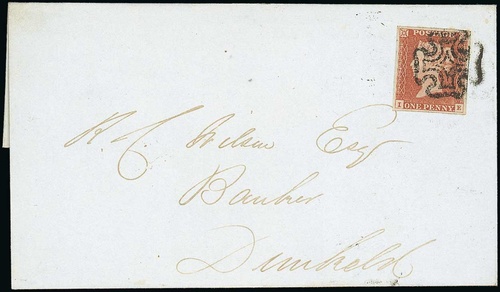 POSTAGE
I E
ONE PENNY
R. C. Wilson Esqr
Banker
Dunkeld